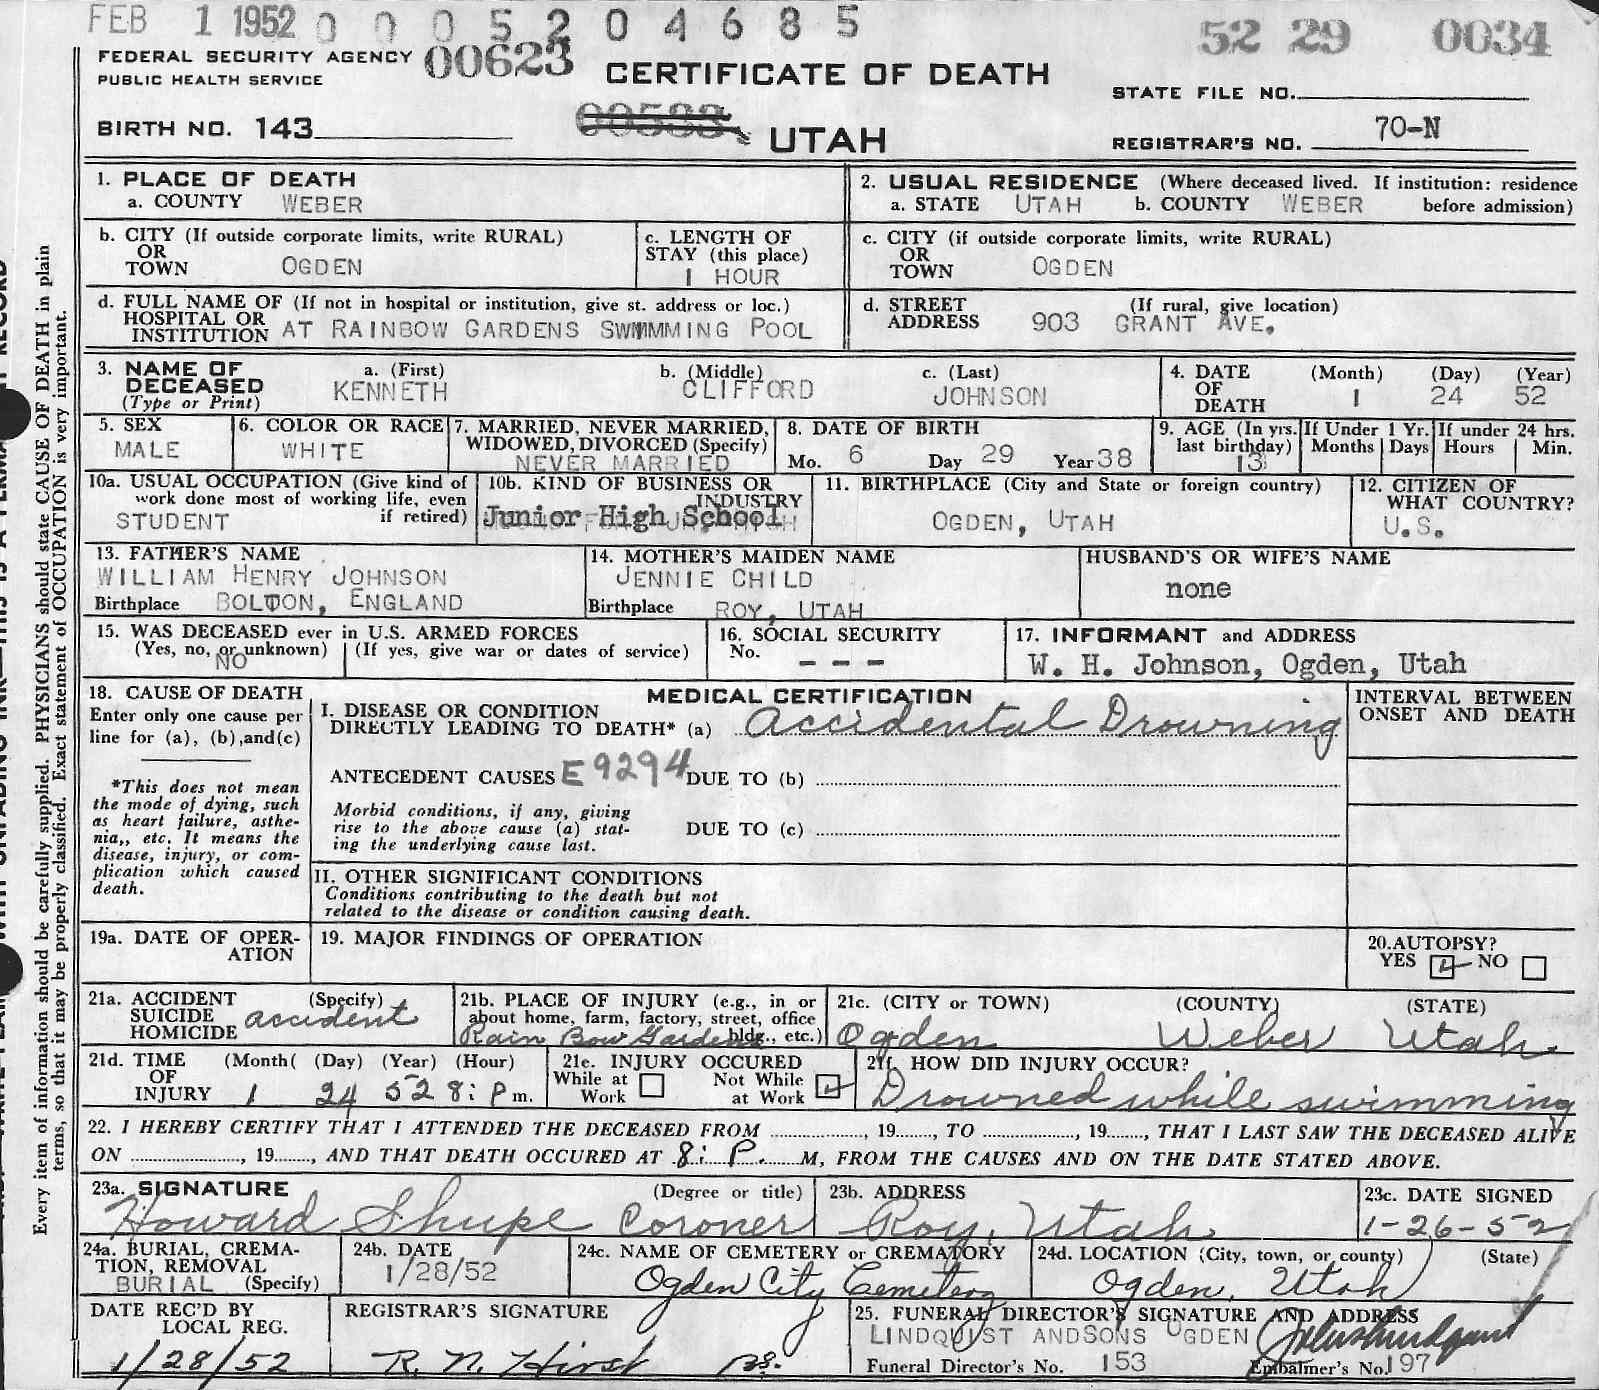 FEB 1 1952 0 0 0 5 2 0 4 6 8 5 52 29 0034
FEDERAL SECURITY AGENCY 00623
PUBLIC HEALTH SERVICE
CERTIFICATE OF DEATH
STATE FILE NO.
BIRTH NO. 143
00533
UTAH
REGISTRAR'S NO. 70-N
1. PLACE OF DEATH
a. COUNTY WEBER
2. USUAL RESIDENCE (Where deceased lived. If institution: residence
a. STATE UTAH b. COUNTY WEBER before admission)
b. CITY (If outside corporate limits, write RURAL)
OR
TOWN OGDEN
c. LENGTH OF
STAY (this place)
1 HOUR
c. CITY (if outside corporate limits, write RURAL)
OR
TOWN OGDEN
d. FULL NAME OF (If not in hospital or institution, give st. address or loc.)
HOSPITAL OR
INSTITUTION AT RAINBOW GARDENS SWMMMING POOL
d. STREET (If rural, give location)
ADDRESS 903 GRANT AVE.
3. NAME OF
DECEASED
(Type or Print)
a. (First)
KENNETH
b. (Middle)
CLIFFORD
c. (Last)
JOHNSON
4. DATE (Month) (Day) (Year)
OF
DEATH 1 24 52
5. SEX
MALE
6. COLOR OR RACE
WHITE
7. MARRIED, NEVER MARRIED,
WIDOWED, DIVORCED (Specify)
NEVER MARRIED
8. DATE OF BIRTH
Mo. 6 Day 29 Year 38
9. AGE (In yrs.
last birthday)
13
If Under 1 Yr.
Months Days
If under 24 hrs.
Hours Min.
10a. USUAL OCCUPATION (Give kind of
work done most of working life, even
STUDENT if retired)
10b. KIND OF BUSINESS OR
INDUSTRY
Junior High School
11. BIRTHPLACE (City and State or foreign country)
OGDEN, UTAH
12. CITIZEN OF
WHAT COUNTRY?
U.S.
13. FATHER'S NAME
WILLIAM HENRY JOHNSON
Birthplace BOLTON, ENGLAND
14. MOTHER'S MAIDEN NAME
JENNIE CHILD
Birthplace ROY, UTAH
HUSBAND'S OR WIFE'S NAME
none
15. WAS DECEASED ever in U.S. ARMED FORCES
(Yes, no, or unknown) (If yes, give war or dates of service)
NO
16. SOCIAL SECURITY
No. - - -
17. INFORMANT and ADDRESS
W. H. Johnson, Ogden, Utah
18. CAUSE OF DEATH
Enter only one cause per
line for (a), (b),and(c)
*This does not mean
the mode of dying, such
as heart failure, asthe-
nia,, etc. It means the
disease, injury, or com-
plication which caused
death.
MEDICAL CERTIFICATION
I. DISEASE OR CONDITION
DIRECTLY LEADING TO DEATH* (a) Accidental Drowning
ANTECEDENT CAUSES E9294 DUE TO (b)
Morbid conditions, if any, giving
rise to the above cause (a) stat-
ing the underlying cause last.
DUE TO (c)
II. OTHER SIGNIFICANT CONDITIONS
Conditions contributing to the death but not
related to the disease or condition causing death.
INTERVAL BETWEEN
ONSET AND DEATH
19a. DATE OF OPER-
ATION
19. MAJOR FINDINGS OF OPERATION
20.AUTOPSY?
YES NO
21a. ACCIDENT (Specify)
SUICIDE
HOMICIDE accident
21b. PLACE OF INJURY (e.g., in or
about home, farm, factory, street, office
bldg., etc.)
Rain Bow Gardens
21c. (CITY or TOWN) (COUNTY) (STATE)
Ogden Weber Utah
21d. TIME (Month( (Day) (Year) (Hour)
OF
INJURY 1 24 52 8: P m.
21e. INJURY OCCURED
While at Not While
Work at Work
21f. HOW DID INJURY OCCUR?
Drowned while swimming
22. I HEREBY CERTIFY THAT I ATTENDED THE DECEASED FROM , 19 , TO , 19 , THAT I LAST SAW THE DECEASED ALIVE
ON , 19 , AND THAT DEATH OCCURED AT 8: P. M, FROM THE CAUSES AND ON THE DATE STATED ABOVE.
23a. SIGNATURE (Degree or title)
Howard Shupe Coroner
23b. ADDRESS
Roy, Utah
23c. DATE SIGNED
1-26-52
24a. BURIAL, CREMA-
TION, REMOVAL
BURIAL (Specify)
24b. DATE
1/28/52
24c. NAME OF CEMETERY or CREMATORY
Ogden City Cemetery
24d. LOCATION (City, town, or county) (State)
Ogden, Utah
DATE REC'D BY
LOCAL REG.
1/28/52
REGISTRAR'S SIGNATURE
R. N. Hirst
25. FUNERAL DIRECTOR'S SIGNATURE AND ADDRESS
LINDQUIST ANDSONS OGDEN
Funeral Director's No. 153 Embalmer's No. 197
Every item of information should be carefully supplied. PHYSICIANS should state CAUSE OF DEATH in plain
terms, so that it may be properly classified. Exact statement of OCCUPATION is very important.